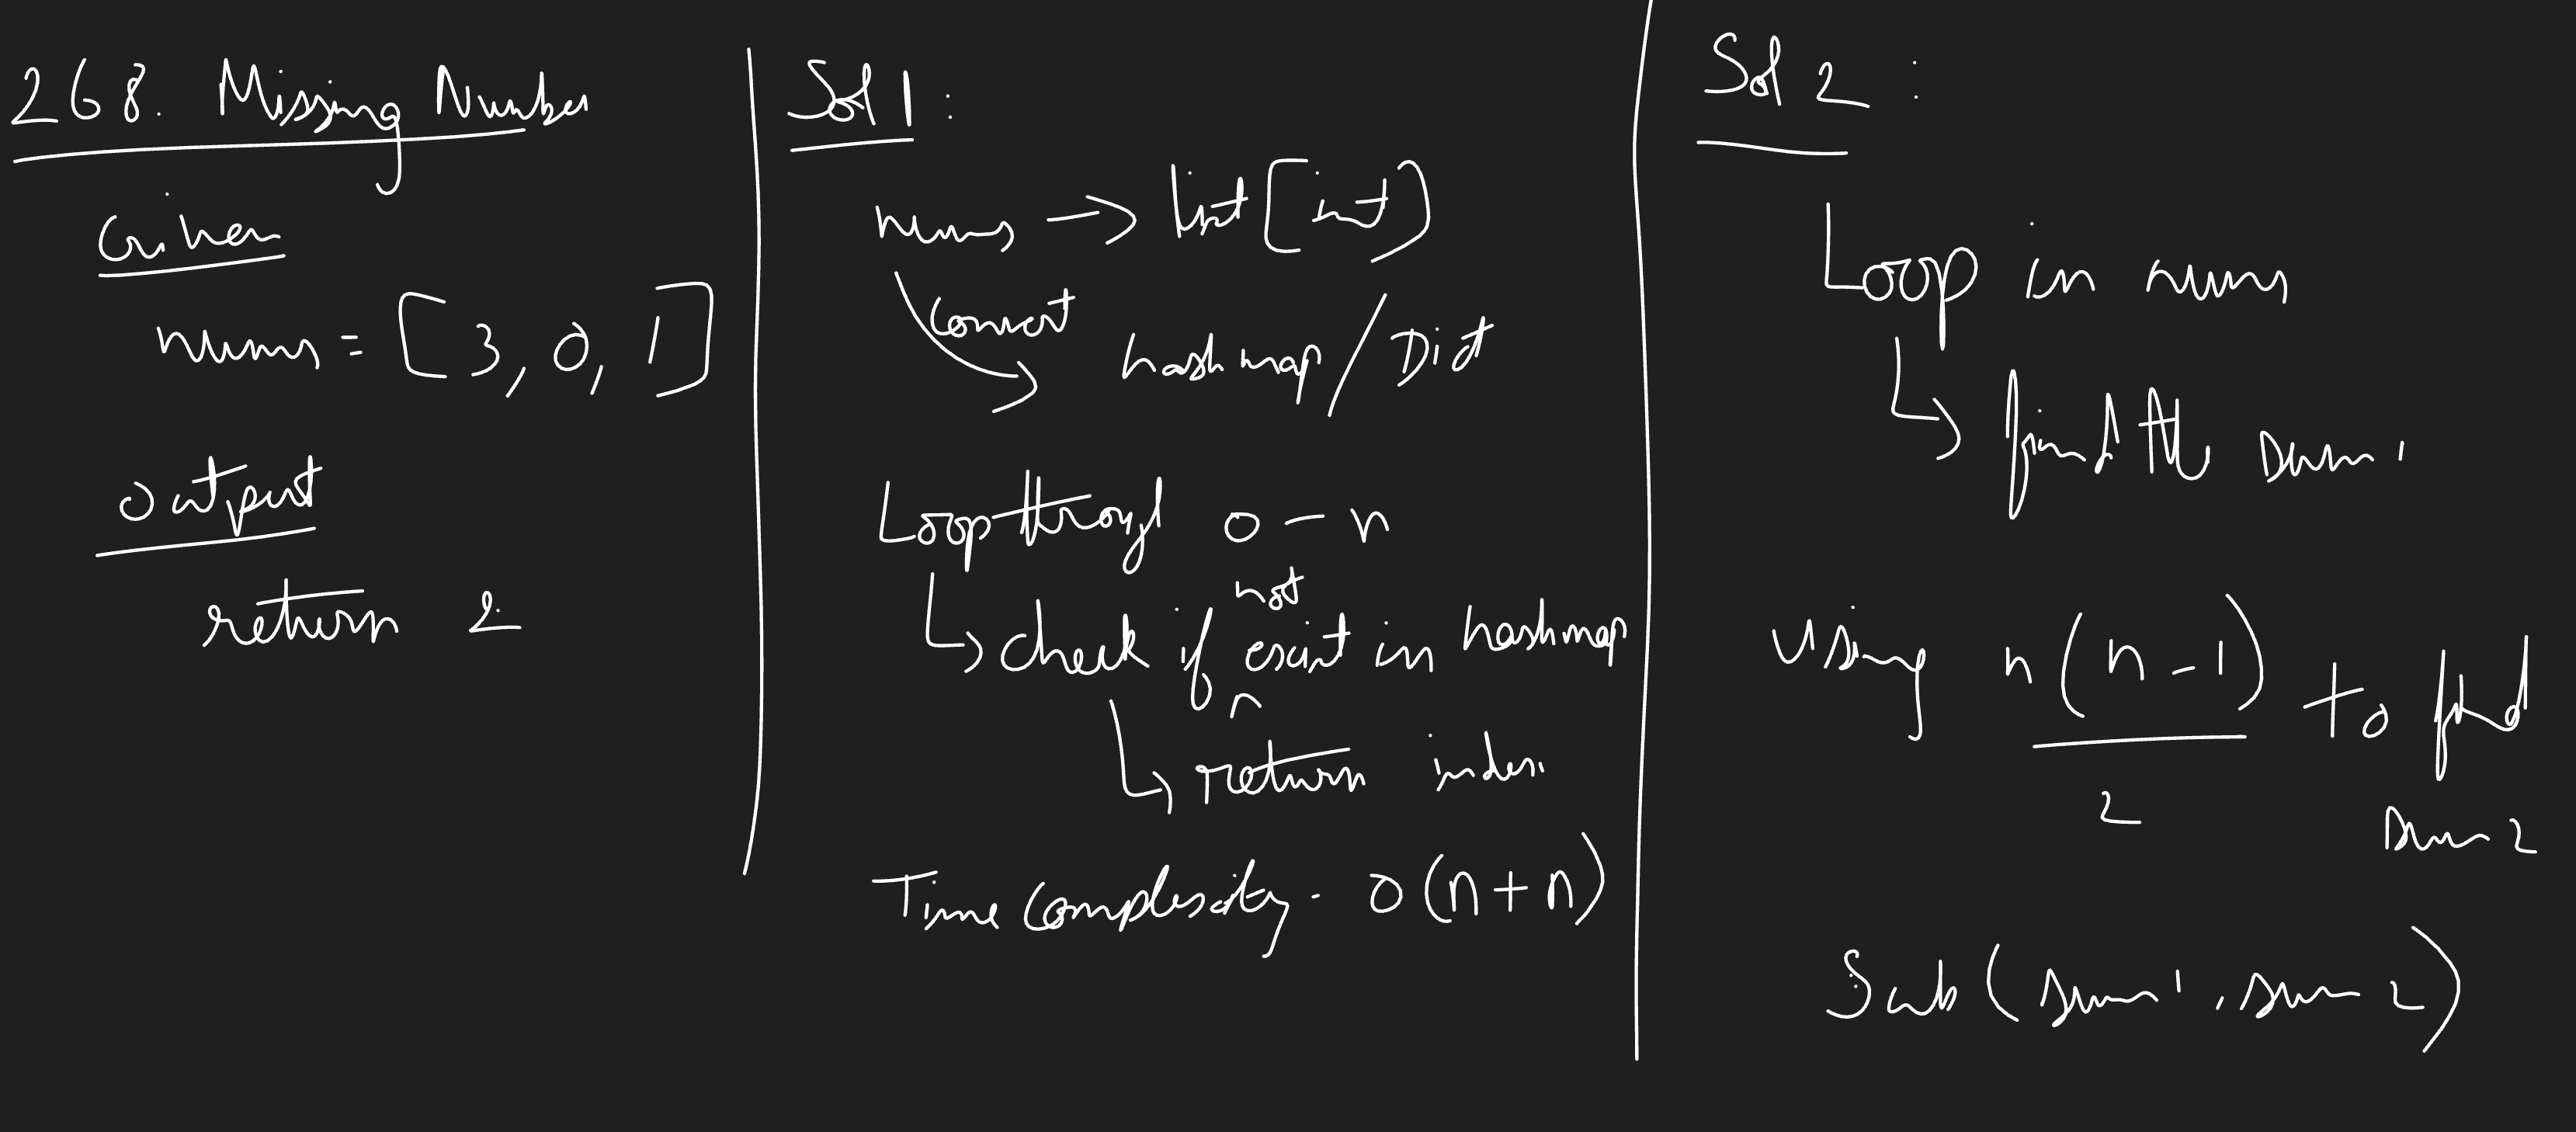 268. Missing Number
Given
nums = [3, 0, 1]
output
return 2
Sol 1:
nums → list[int]
convert
hashmap / Dict
Loop through 0 - n
not
↳ check if ^ exist in hashmap
↳ return index.
Time Complexity - O(n+n)
Sol 2:
Loop in nums
↳ find the sum 1
using n(n-1) to find
2
sum 2
Sub(sum 1, sum 2)